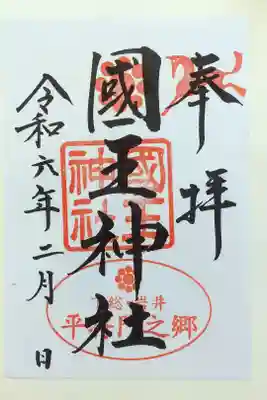 奉拝
國王神社
令和六年二月 日
國王神社
総 岩井
平 門之郷